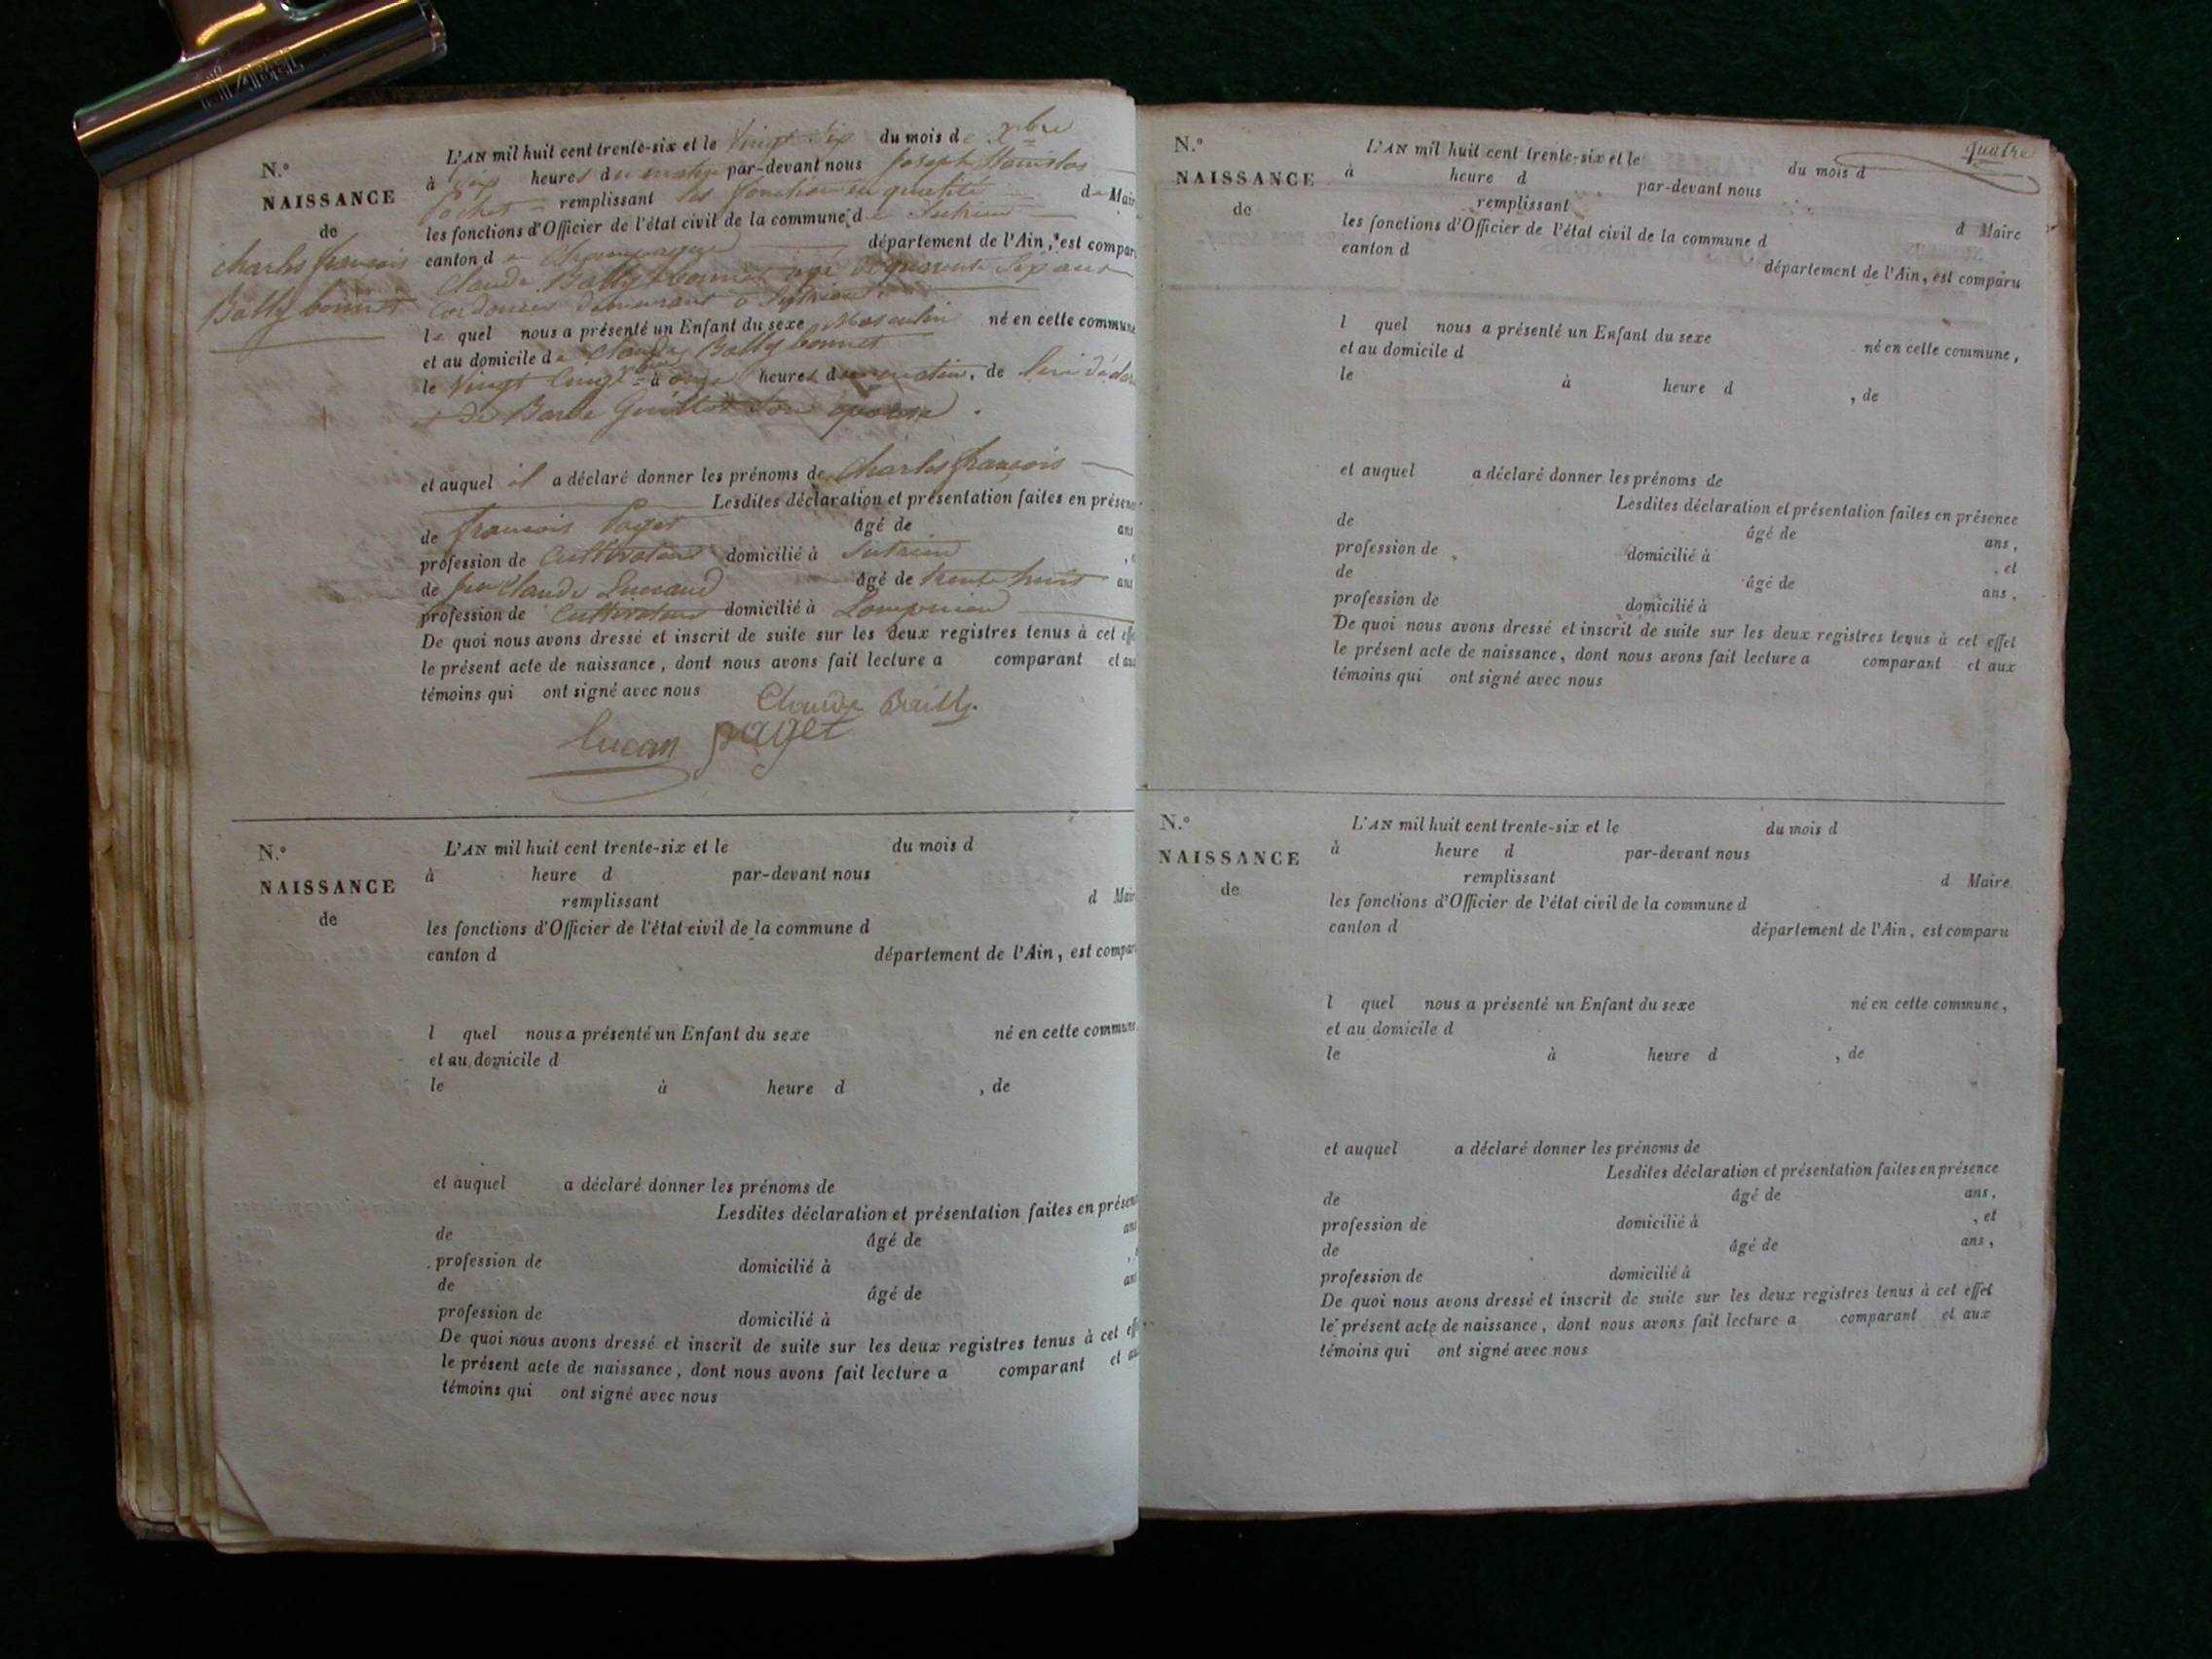 N.° NAISSANCE de
charles françois
Bailly bonnet
L'AN mil huit cent trente-six et le vingt Six du mois de Xbre
à dix heures du matin par-devant nous Joseph Stanislas
Pochet remplissant les fonctions en qualité de Mair
les fonctions d'Officier de l'état civil de la commune de Sutrieu
canton de Champagne département de l'Ain, est compar
Claude Bailly bonnet agé de quarante Six ans
Cordonier demeurant a Sutrieu
le quel nous a présenté un Enfant du sexe Masculin né en cette commune
et au domicile de Claude Bailly bonnet
le Vingt Cinq Xbre à onze heures du matin, de lui déclar
et de Barbe Guillot Son épouse.
et auquel il a déclaré donner les prénoms de Charles françois
Lesdites déclaration et présentation faites en présen
de françois Paget âgé de ans
profession de Cultivateur domicilié à Sutrieu
de Claude Lucand âgé de trente huit ans
profession de Cultivateur domicilié à Lompnieu
De quoi nous avons dressé et inscrit de suite sur les deux registres tenus à cet effe
le présent acte de naissance, dont nous avons fait lecture a comparant et aux
témoins qui ont signé avec nous
Claude Bailly.
lucan paget
N.° NAISSANCE de
L'AN mil huit cent trente-six et le du mois d
à heure d par-devant nous
remplissant d Mair
les fonctions d'Officier de l'état civil de la commune d
canton d département de l'Ain, est compar
l quel nous a présenté un Enfant du sexe né en cette commune
et au domicile d
le à heure d , de
et auquel a déclaré donner les prénoms de
Lesdites déclaration et présentation faites en présen
de âgé de ans
profession de domicilié à ,
de âgé de ans
profession de domicilié à
De quoi nous avons dressé et inscrit de suite sur les deux registres tenus à cet effe
le présent acte de naissance, dont nous avons fait lecture a comparant et au
témoins qui ont signé avec nous
quatre
N.° NAISSANCE de
L'AN mil huit cent trente-six et le du mois d
à heure d par-devant nous
remplissant d Maire
les fonctions d'Officier de l'état civil de la commune d
canton d département de l'Ain, est comparu
l quel nous a présenté un Enfant du sexe né en cette commune,
et au domicile d
le à heure d , de
et auquel a déclaré donner les prénoms de
Lesdites déclaration et présentation faites en présence
de âgé de ans,
profession de domicilié à , et
de âgé de ans,
profession de domicilié à
De quoi nous avons dressé et inscrit de suite sur les deux registres tenus à cet effet
le présent acte de naissance, dont nous avons fait lecture a comparant et aux
témoins qui ont signé avec nous
N.° NAISSANCE de
L'AN mil huit cent trente-six et le du mois d
à heure d par-devant nous
remplissant d Maire
les fonctions d'Officier de l'état civil de la commune d
canton d département de l'Ain, est comparu
l quel nous a présenté un Enfant du sexe né en cette commune,
et au domicile d
le à heure d , de
et auquel a déclaré donner les prénoms de
Lesdites déclaration et présentation faites en présence
de âgé de ans,
profession de domicilié à , et
de âgé de ans,
profession de domicilié à
De quoi nous avons dressé et inscrit de suite sur les deux registres tenus à cet effet
le présent acte de naissance, dont nous avons fait lecture a comparant et aux
témoins qui ont signé avec nous